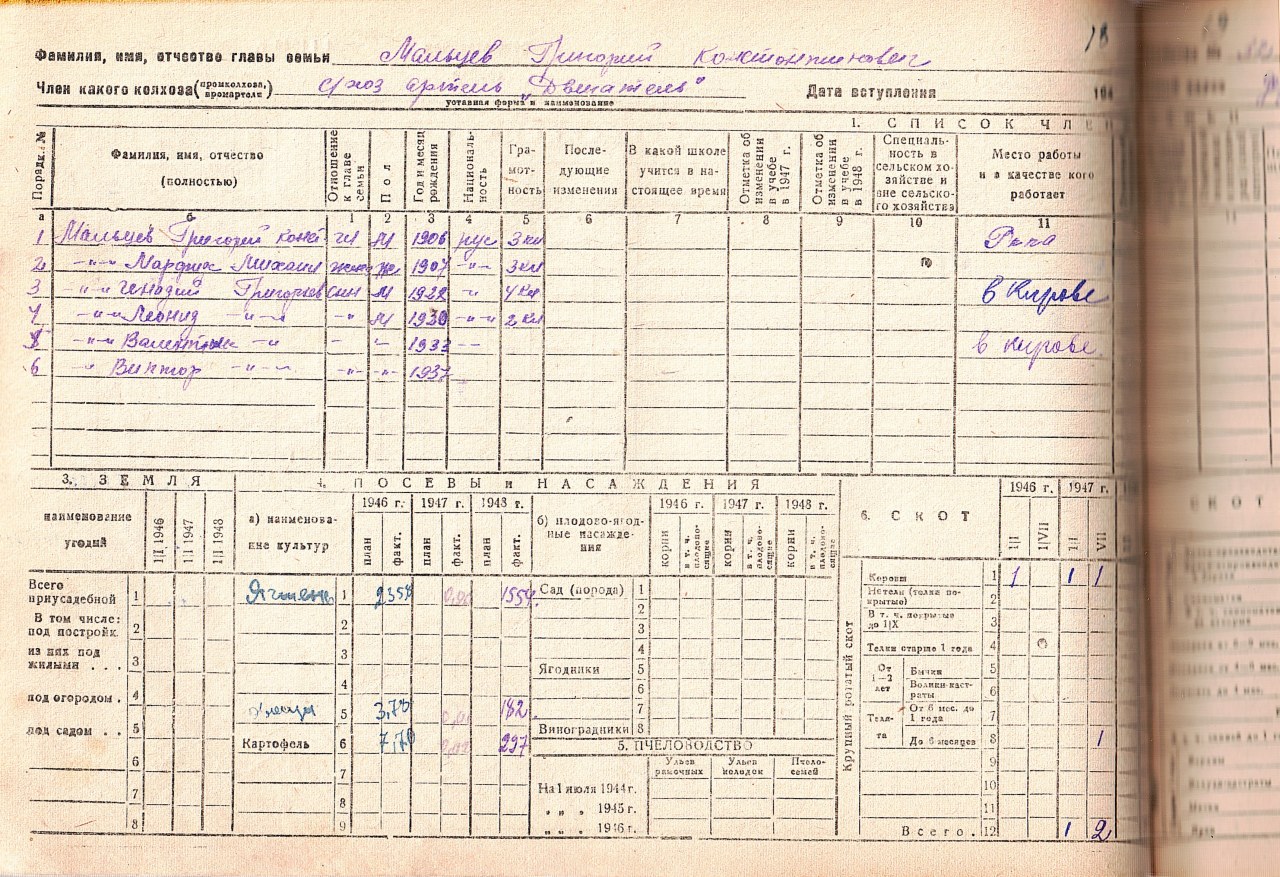 18
Фамилия, имя, отчество главы семьи Мальцев Григорий Константинович
Член какого колхоза (промколхоза, промартели) с/хоз артель „Двигатель" Дата вступления 194
уставная форма и наименование
1. СПИСОК ЧЛЕН
Порядк. №
Фамилия, имя, отчество (полностью)
Отношение к главе семьи
Пол
Год и месяц рождения
Националь-ность
Гра-мот-ность
После-дующие изменения
В какой школе учится в на-стоящее время
Отметка об изменении в учебе в 1947 г.
Отметка об изменении в учебе в 1948 г.
Специаль-ность в сельском хо-зяйстве и вне сельско-го хозяйства
Место работы и в качестве кого работает
а б 1 2 3 4 5 6 7 8 9 10 11
1 Мальцев Григорий Конст гл М 1906 рус 3 кл
2 -"- Михаил жена ж 1907 -"- 3 кл
3 -"- Генадий Григорьев сын М 1922 -"- 4 кл в Кирове
4 -"- Леонид -"- -"- М 1930 -"- 2 кл
5 -"- Валентин -"- - -"- 1933 -- в Кирове
6 -"- Виктор -"- -"- -"- 1937
3. ЗЕМЛЯ
наименование угодий
1|I 1946
1|I 1947
1|I 1948
Всего приусадебной 1
В том числе: под постройк. 2
из них под жилыми . . . 3
под огородом . 4
под садом . . 5
6
7
8
4. ПОСЕВЫ и НАСАЖДЕНИЯ
а) наименова-ние культур
1946 г. 1947 г. 1948 г.
план факт. план факт. план факт.
Ячмень 1 2358 0,00 1554
2
3
4
5 3,78 0,00 182
Картофель 6 7,70 0,00 297
7
8
9
б) плодово-ягод-ные насажде-ния
1946 г. 1947 г. 1948 г.
корни в т. ч. плодоно-сящие корни в т. ч. плодоно-сящие корни в т. ч. плодоно-сящие
Сад (порода) 1
2
3
4
Ягодники 5
6
7
Виноградники 8
5. ПЧЕЛОВОДСТВО
Ульев рамочных
Ульев колодок
Пчело-семей
На 1 июля 1944 г.
„ „ „ 1945 г.
„ „ „ 1946 г.
6. СКОТ
1946 г. 1947 г.
1|I 1|VII 1|I VII
Крупный рогатый скот
Коровы 1 1 1 1
Нетели (телки по-крытые) 2
В т. ч. покрытые до 1|IX 3
Телки старше 1 года 4
От 1—2 лет
Бычки 5
Волики-каст-раты 6
Теля-та
От 6 мес. до 1 года 7
До 6 месяцев 8 1
9
10
11
Всего . 12 1 2